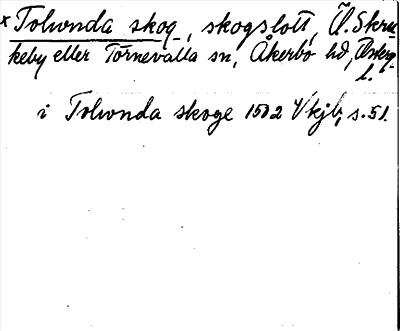 x Tolvonda skog, skogslott, Ö. Skru-
keby eller Törnevalla sn, Åkerbo hd, Österg.
l.
i Tolvonda skoge 1502 Vkjb, s. 51.